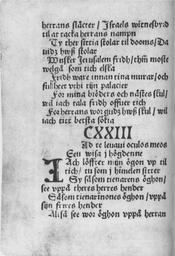 herrans slächter / Israels witnesbyrd
til at tacka herrans nampn
Ty ther sittia stolar til dooms / Da
uidz hws stolar
Wnsker Jerusalem fridh / them moste
welgå som tich elska
Fridh ware innan tina murar / och
i tijn palacier
För mina bröders och nästes skul /
wil iach tala fridh offuer tich
För herrans wor gudz hws skul / wil
iach titt betzsta söka
CXXIII
Ad te leuaui oculos meos
Een wisa j högdenne
Iach löffter mijn ögon vp til
tich / tu som j himelen sitter
Sy såsom tienarens öghon /
see vppå theres herres hender
Såsom tienarinnones öghon / vppå
sijn frwes hender
Altså see wor öghon vppå herran